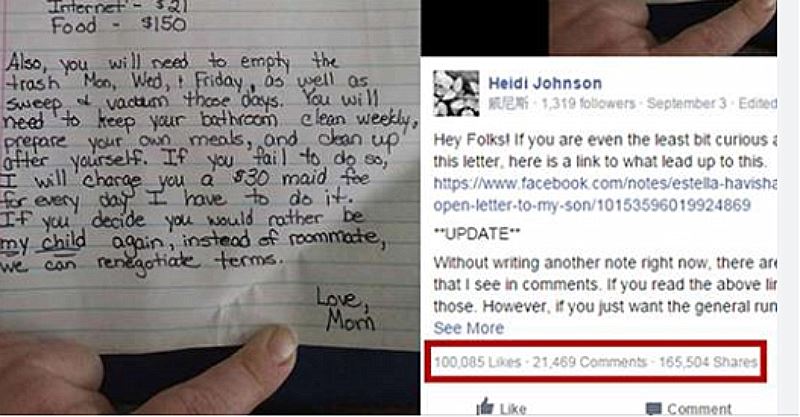 Internet - $21
Food - $150
Also, you will need to empty the
trash Mon, Wed, + Friday, as well as
sweep & vaccum those days. You will
need to keep your bathroom clean weekly,
prepare your own meals, and clean up
after yourself. If you fail to do so,
I will charge you a $30 maid fee
for every day I have to do it.
If you decide you would rather be
my child again, instead of roommate,
we can renegotiate terms.
Love,
Mom
Heidi Johnson
凱尼斯 · 1,319 followers · September 3 · Edited
Hey Folks! If you are even the least bit curious a
this letter, here is a link to what lead up to this.
https://www.facebook.com/notes/estella-havisha
open-letter-to-my-son/10153596019924869
**UPDATE**
Without writing another note right now, there are
that I see in comments. If you read the above lin
those. However, if you just want the general run
See More
100,085 Likes · 21,469 Comments · 165,504 Shares
Like
Comment